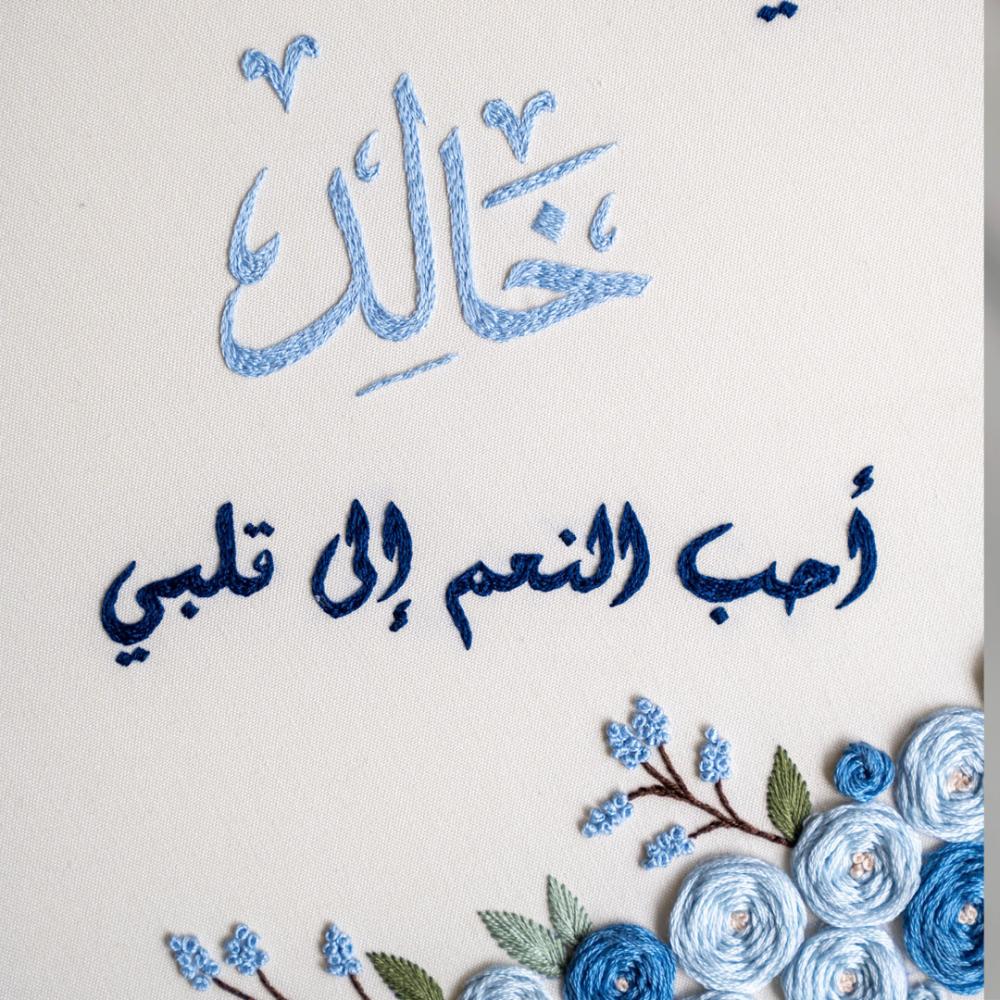 خَالِد
أحب النعم إلى قلبي